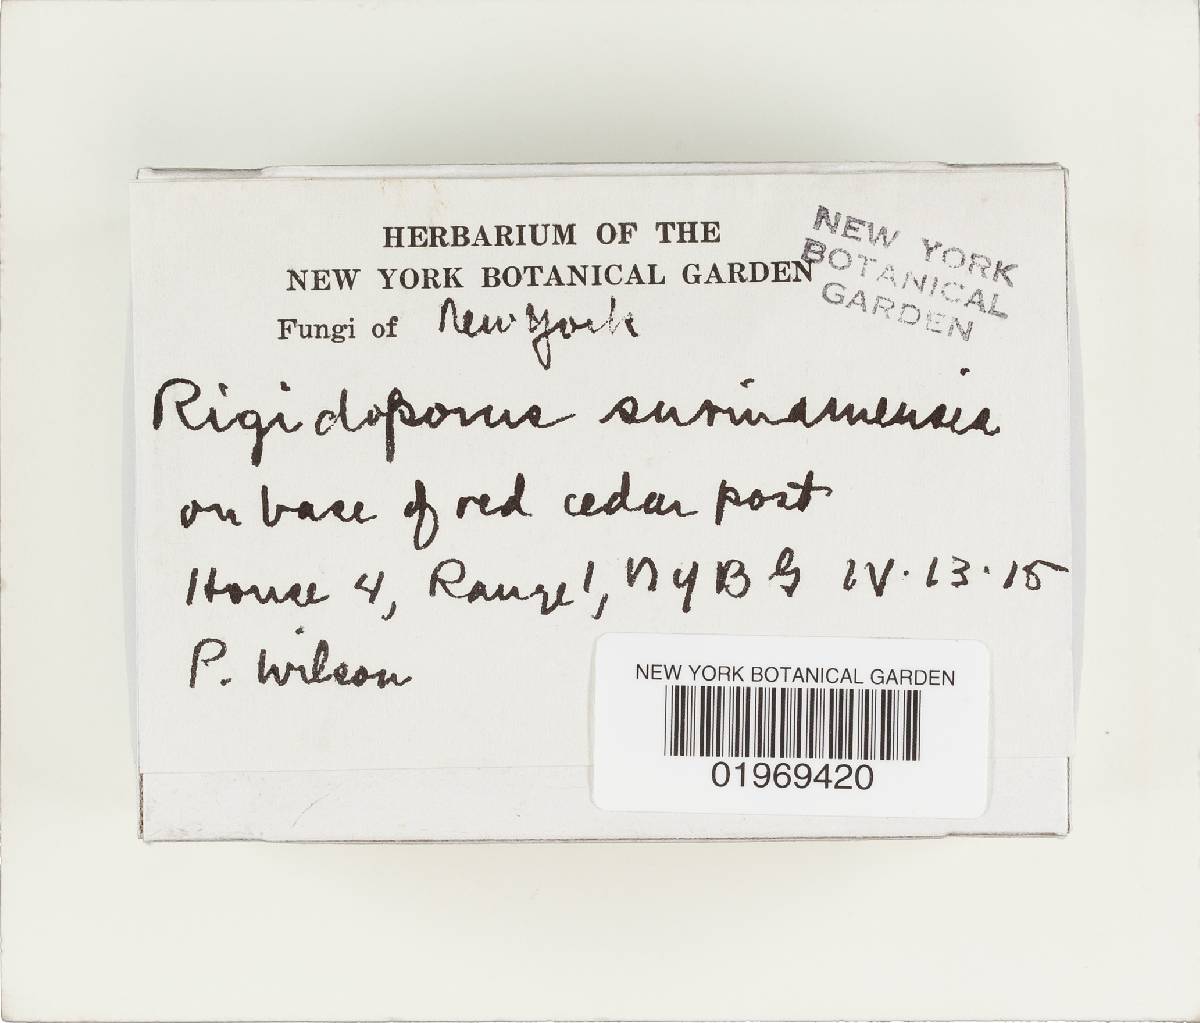 HERBARIUM OF THE
NEW YORK BOTANICAL GARDEN
NEW YORK
BOTANICAL
GARDEN
Fungi of New York
Rigidoporus surinamensis
on base of red cedar post
House 4, Range 1, NYBG IV·13·15
P. Wilson
NEW YORK BOTANICAL GARDEN
01969420